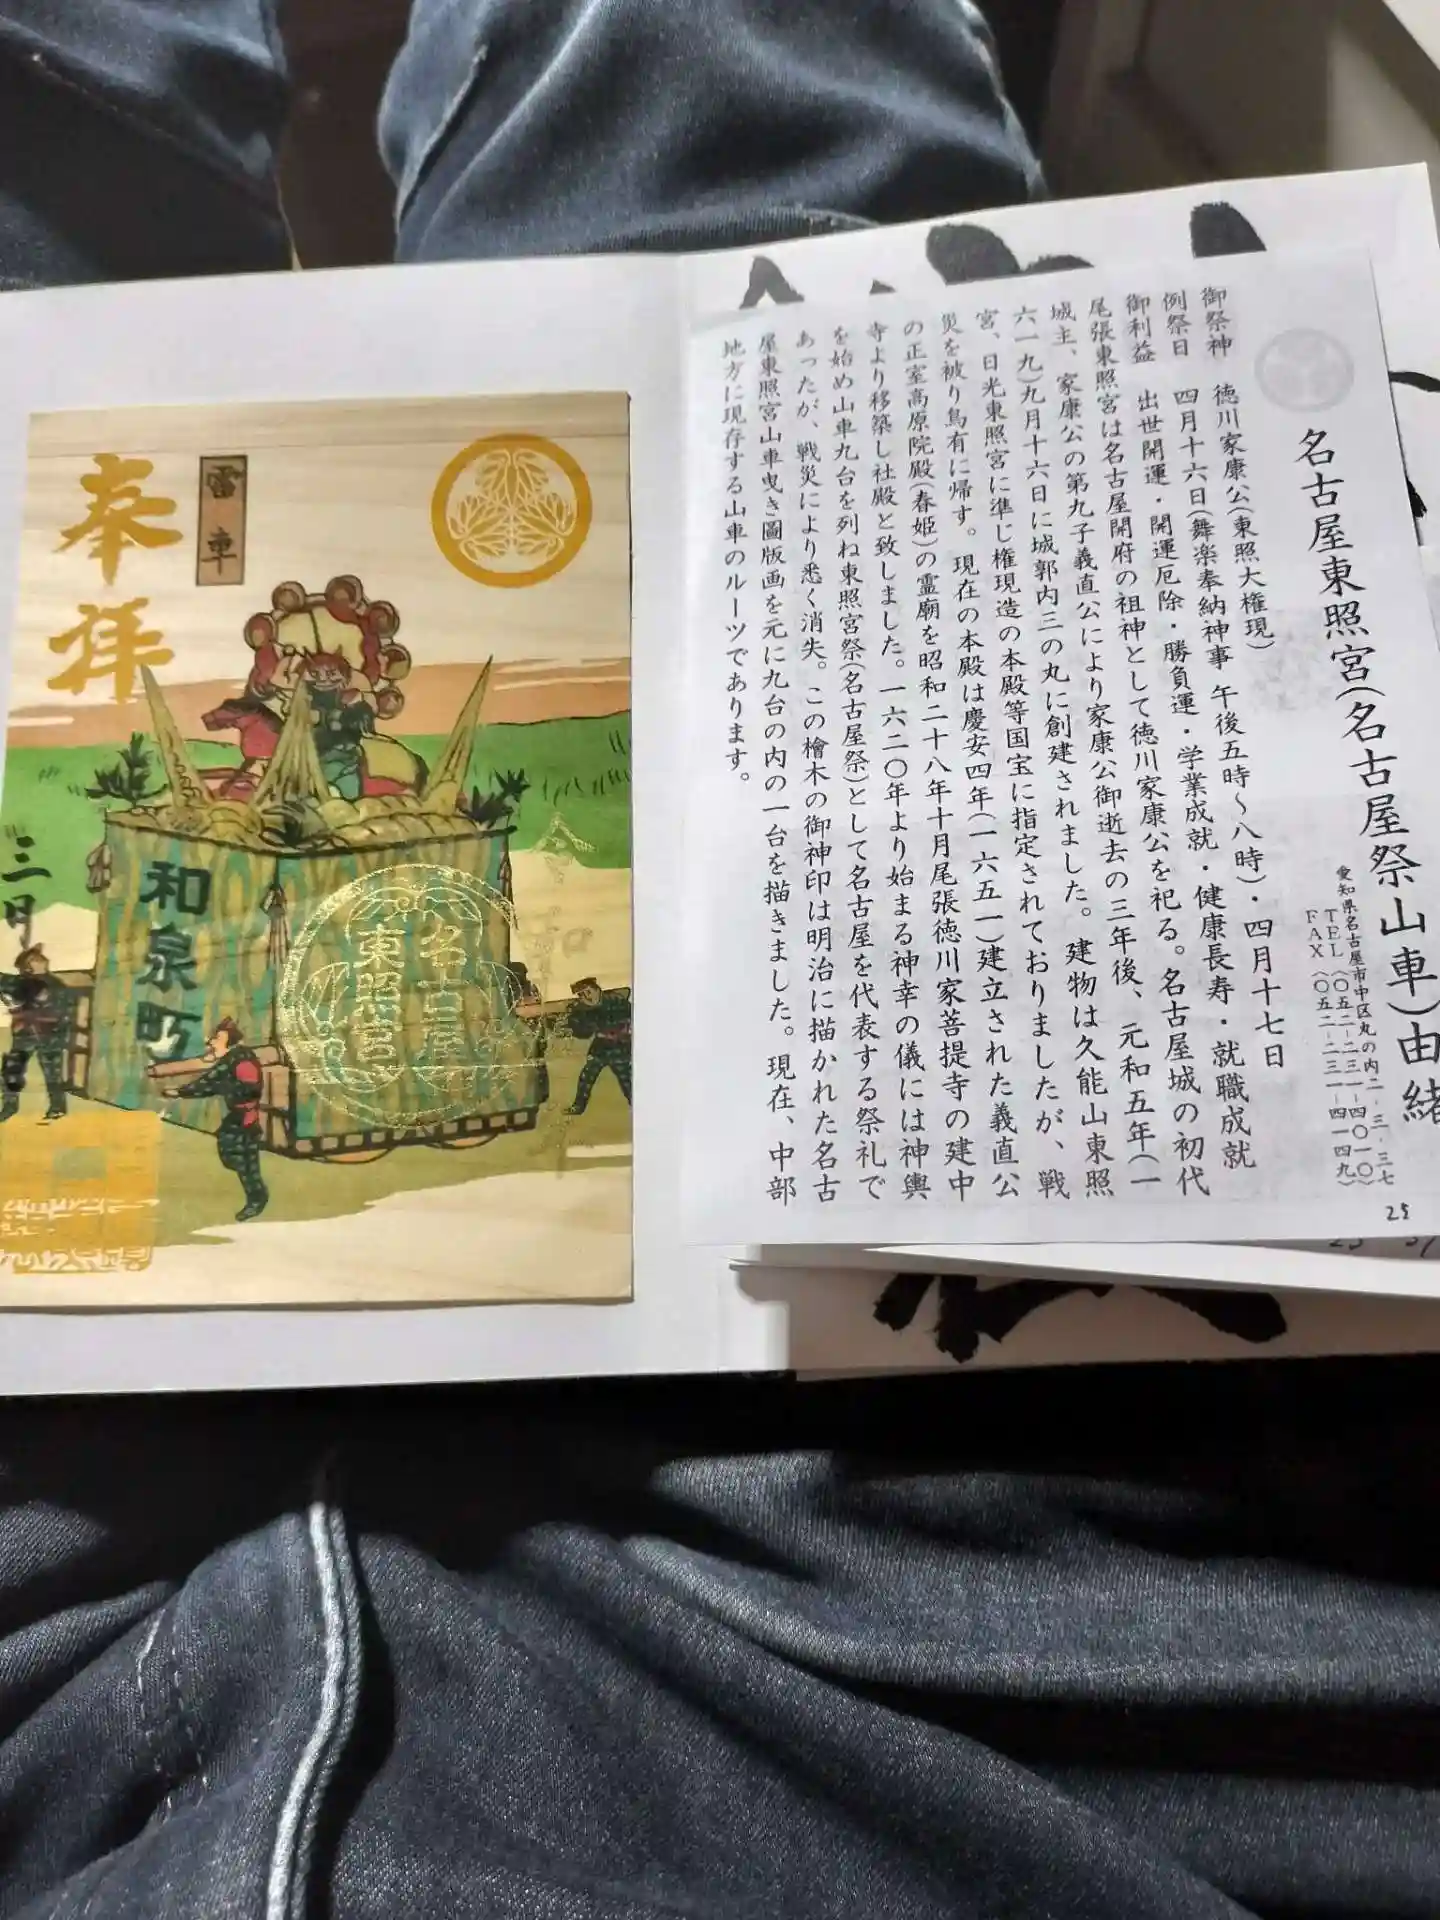 名古屋東照宮(名古屋祭山車)由緒
愛知県名古屋市中区丸の内二-三-三七
TEL(〇五二-二三一-四〇一〇)
FAX(〇五二-二三一-四一四九)
御祭神 徳川家康公(東照大権現)
例祭日 四月十六日(舞楽奉納神事 午後五時~八時)・四月十七日
御利益 出世開運・開運厄除・勝負運・学業成就・健康長寿・就職成就
尾張東照宮は名古屋開府の祖神として徳川家康公を祀る。名古屋城の初代
城主、家康公の第九子義直公により家康公御逝去の三年後、元和五年(一
六一九)九月十六日に城郭内三の丸に創建されました。建物は久能山東照
宮、日光東照宮に準じ権現造の本殿等国宝に指定されておりましたが、戦
災を被り烏有に帰す。現在の本殿は慶安四年(一六五一)建立された義直公
の正室高原院殿(春姫)の霊廟を昭和二十八年十月尾張徳川家菩提寺の建中
寺より移築し社殿と致しました。一六二〇年より始まる神幸の儀には神輿
を始め山車九台を列ね東照宮祭(名古屋祭)として名古屋を代表する祭礼で
あったが、戦災により悉く消失。この檜木の御神印は明治に描かれた名古
屋東照宮山車曳き圖版画を元に九台の内の一台を描きました。現在、中部
地方に現存する山車のルーツであります。
25
雷車
奉拝
和泉町
名古屋
東照宮
三日